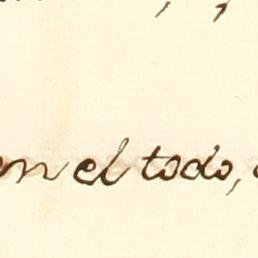 en el todo,